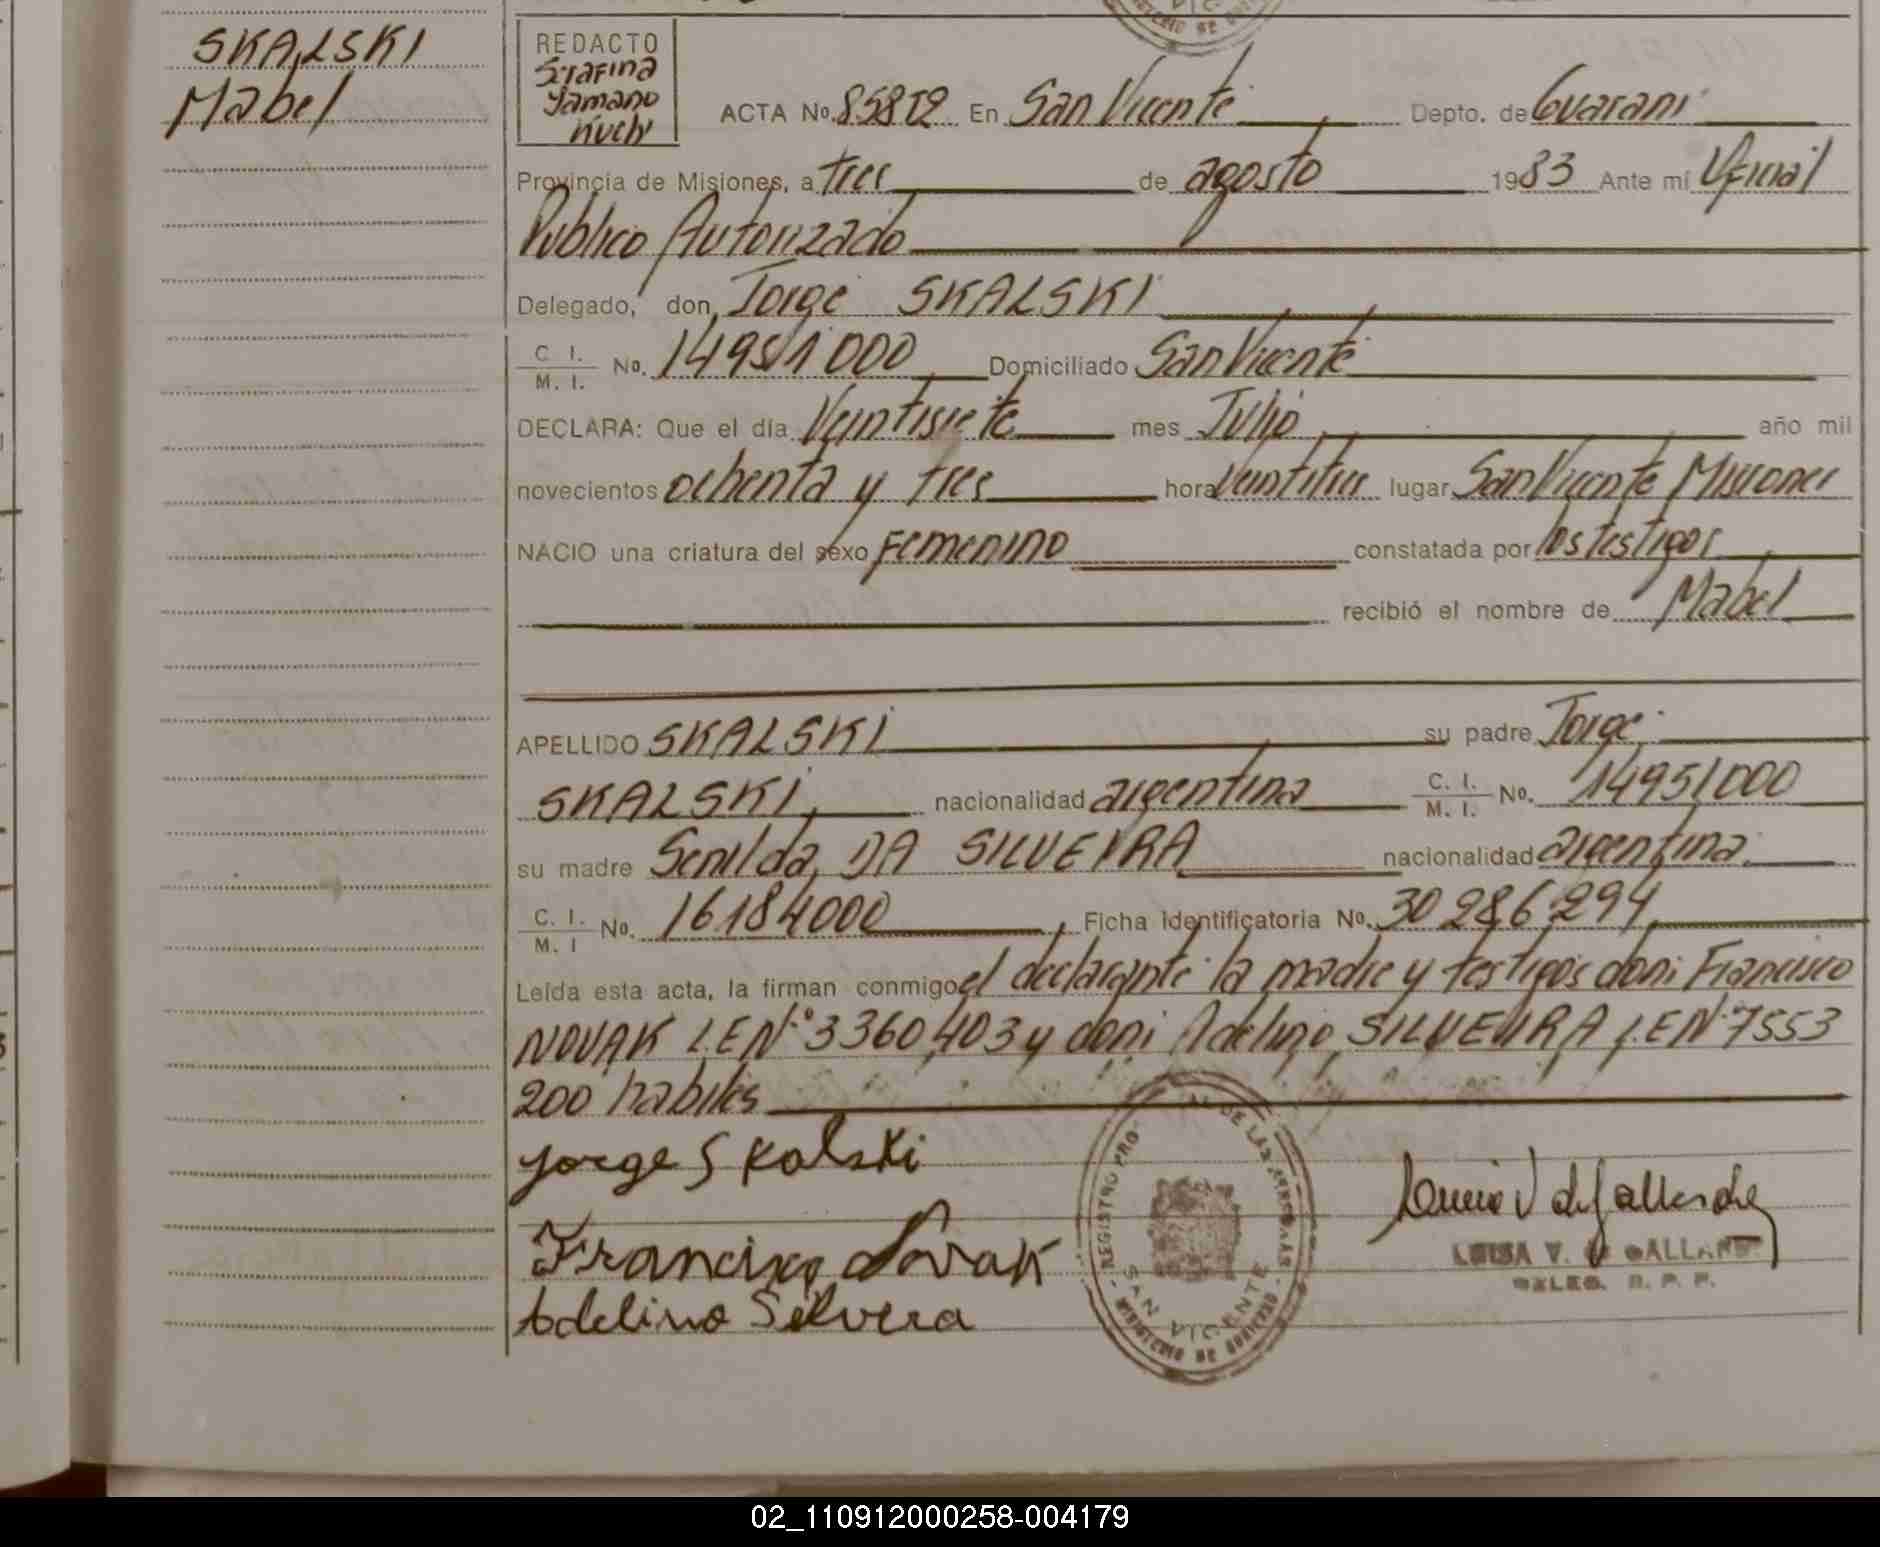 SKALSKI
Mabel
REDACTO
Serafina
Yamano
Kuchi
ACTA No. En San Vicente Depto. de Guarani
Provincia de Misiones, a tres de agosto 1983 Ante mí Oficial
Publico Autorizado
Delegado, don Jorge SKALSKI
C. I. / M. I. No. 14951000 Domiciliado San Vicente
DECLARA: Que el día Veintisiete mes Julio año mil
novecientos ochenta y tres hora veintitres lugar San Vicente Misiones
NACIO una criatura del sexo Femenino constatada por los testigos
recibió el nombre de Mabel
APELLIDO SKALSKI su padre Jorge
SKALSKI, nacionalidad argentina C. I. / M. I. No. 14951000
su madre Senilda, DA SILVEIRA nacionalidad argentina
C. I. / M. I No. 16184000, Ficha identificatoria No. 30286294
Leída esta acta, la firman conmigo el declarante la madre y testigos don: Francisco
NOVAK L.E.N.º 3360403 y don: Adelino SILVEIRA L.E.N.º 7553
200 habiles
Jorge Skalski
Francisco Novak
Adelino Silvera
REGISTRO PRO AL DE LAS PERSONAS
SAN VICENTE
MINISTERIO DE GOBIERNO
LUISA V. DE GALLAND
DELEG. R. P. P.
02_110912000258-004179